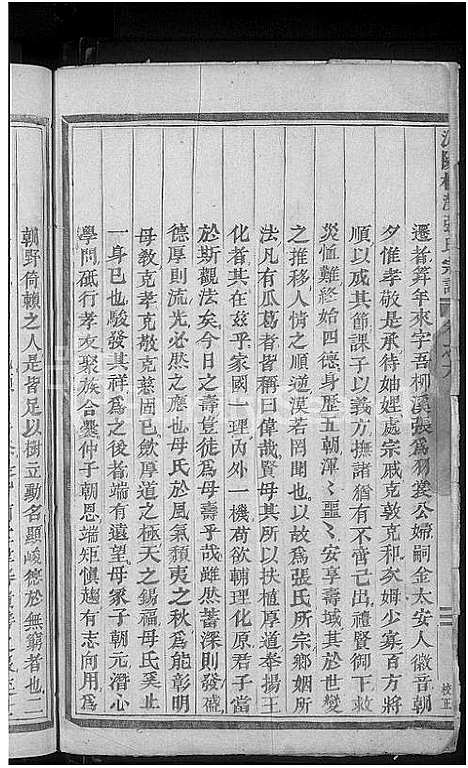 遷者筓年來字吾柳溪張爲羽裳公婦嗣金太安人徽音朝
夕惟孝敬是承待妯娌處宗戚克敦克和亥姆少寡百方將
順以成其節課子以義方撫諸猶有不啻己出禮賢御下救
災恤難終始四德身歷五朝渾〻噩〻安享壽域其於世變
之推移人情之順逆漠若罔聞也以故爲張氏所宗鄉姻所
法凡有瓜葛者皆稱曰偉哉賢母其所以扶植厚道奉揚王
化者其在茲乎家國一理內外一機苟欲輔理化原君子當
於斯觀法矣今日之壽豈徒爲母壽乎哉雖然蓄深則發盛
德厚則流光必然之應也母氏於風氣穨夷之秋爲能彰明
母教克孝克敬克慈固已斂厚道之極天之錫福母氏奚止
一身已也駿發其祥爲之後者端有遠望母冢子朝元潛心
學問砥行孝友聚族合爨仲子朝恩端矩愼趨有志向用爲
朝野倚賴之人是皆足以樹立勳名顯峻德於無窮者也二
張氏宗譜
校正